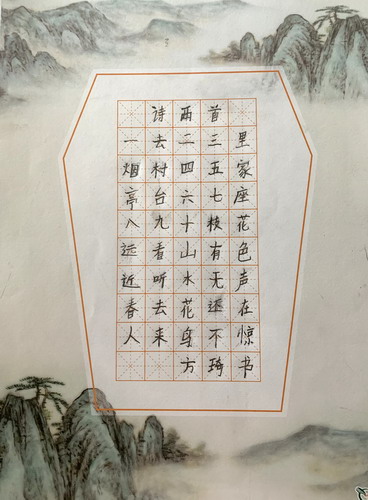 诗两首
一去二三里
烟村四五家
亭台六七座
八九十枝花
远看山有色
近听水无声
春去花还在
人来鸟不惊
方琦书